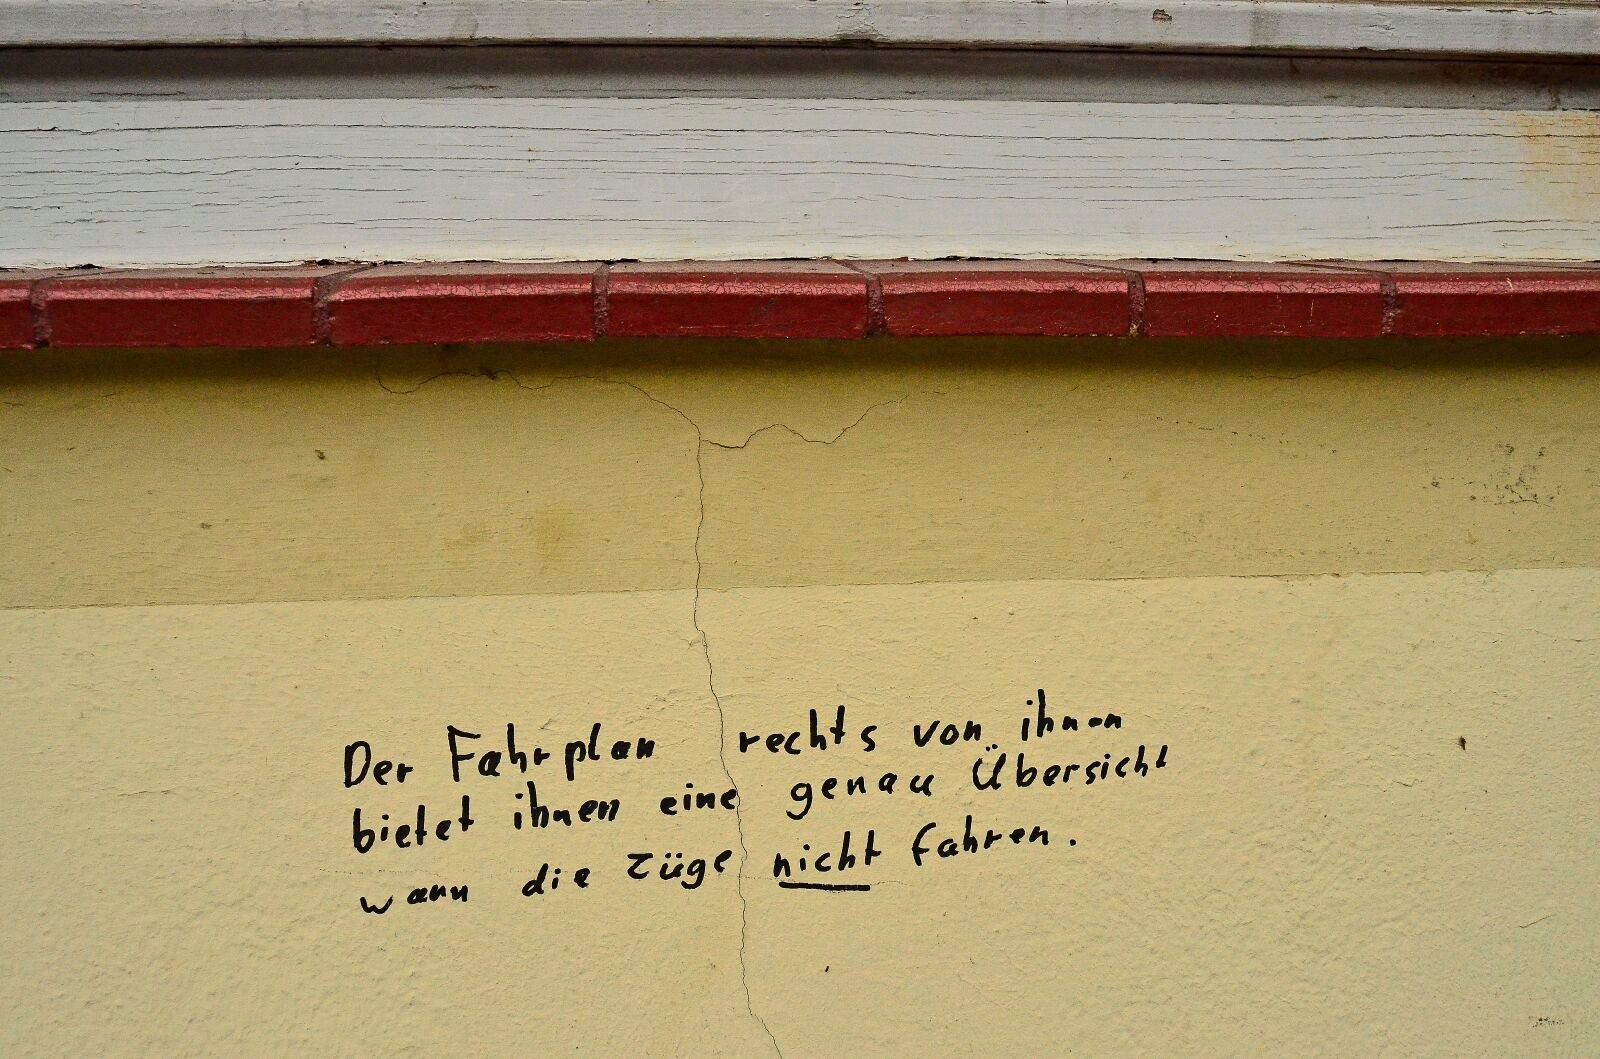 Der Fahrplan rechts von ihnen
bietet ihnen eine genau Übersicht
wann die Züge nicht fahren.